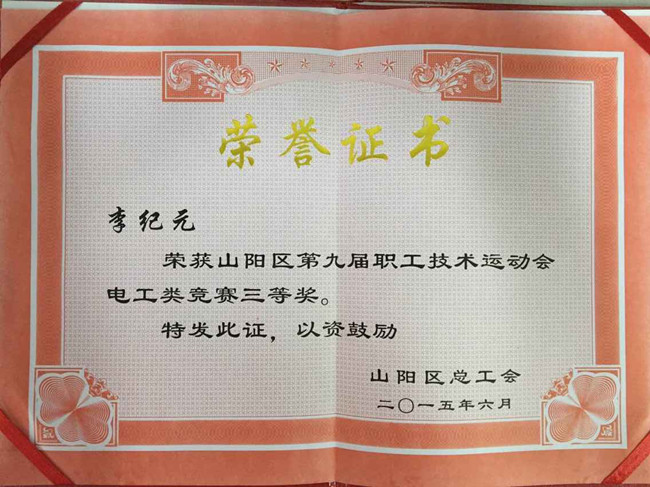 荣誉证书
李纪元
荣获山阳区第九届职工技术运动会
电工类竞赛三等奖。
特发此证，以资鼓励
山阳区总工会
二〇一五年六月